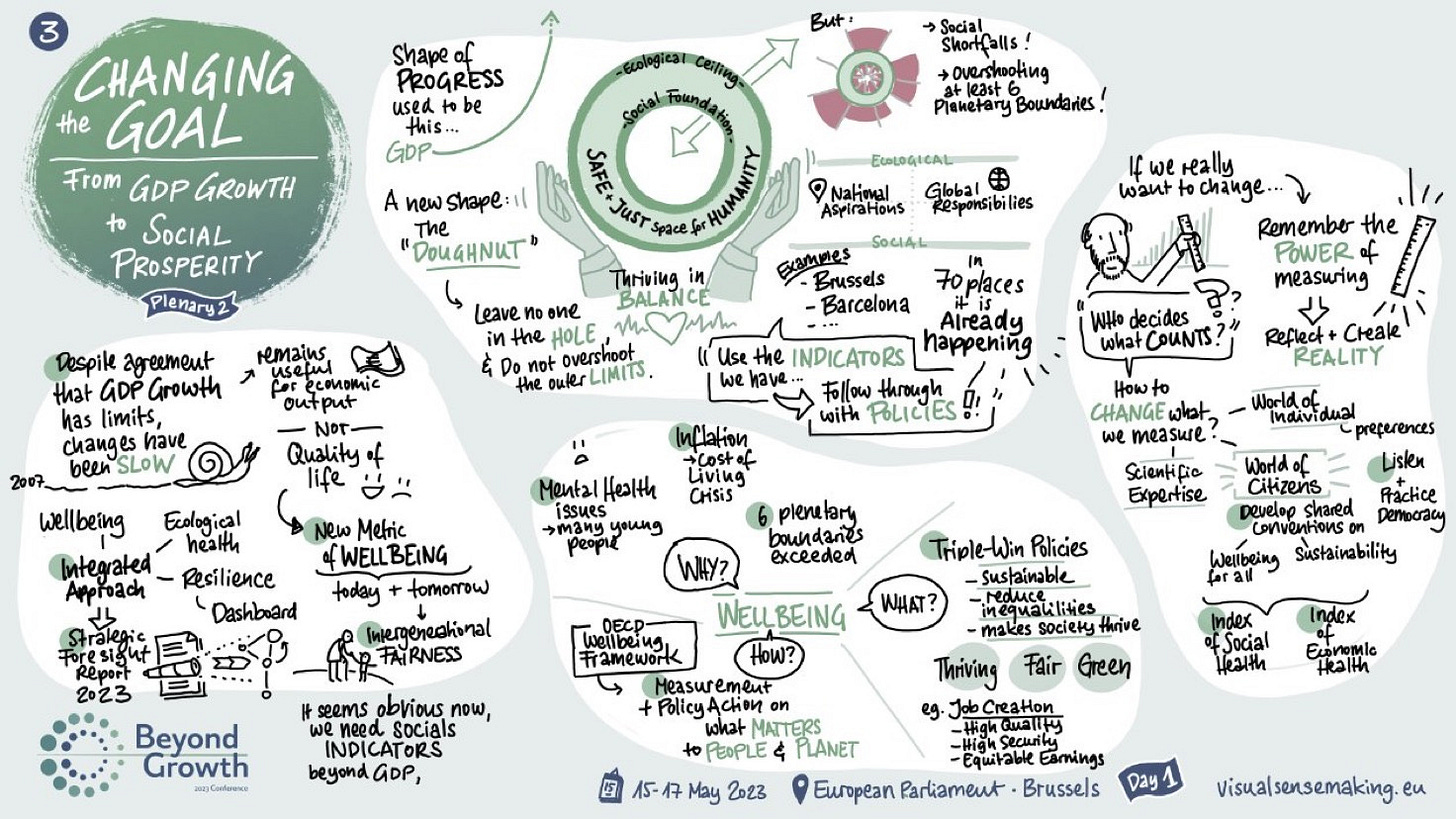 3
CHANGING
the GOAL
From GDP GROWTH
to SOCIAL
PROSPERITY
Plenary 2
Shape of
PROGRESS
used to be
this...
GDP
A new shape:
The
"DOUGHNUT"
Leave no one
in the HOLE,
& Do not overshoot
the outer LIMITS.
-Ecological Ceiling-
-Social Foundation-
SAFE + JUST space for HUMANITY
Thriving in
BALANCE
But:
→ Social
Shortfalls!
→ Overshooting
at least 6
Planetary Boundaries!
ECOLOGICAL
National
Aspirations
Global
Responsibilies
SOCIAL
Examples
- Brussels
- Barcelona
- ...
in
70 places
it is
Already
happening
"Use the INDICATORS
we have...
Follow through
with POLICIES!"
If we really
want to change...
Remember the
POWER of
measuring
Reflect + Create
REALITY
"Who decides
what COUNTS?"
??
How to
CHANGE what
we measure?
Scientific
Expertise
World of
Individual
preferences
World of
Citizens
Listen
+
Practice
Democracy
Develop shared
conventions on
Wellbeing
for all
Sustainability
Index
of Social
Health
Index
of
Economic
Health
Despite agreement
that GDP Growth
has limits,
changes have
been SLOW
2007
remains
useful
for economic
output
- NOT -
Quality of
life
New Metric
of WELLBEING
today + tomorrow
Intergenerational
FAIRNESS
Wellbeing
Ecological
health
Integrated
Approach
- Resilience
Dashboard
Strategic
Foresight
Report
2023
It seems obvious now,
we need socials
INDICATORS
beyond GDP,
Mental Health
issues
→ many young
people
Inflation
→ Cost of
Living
Crisis
6 plenetary
boundaries
exceeded
WHY?
WELLBEING
WHAT?
HOW?
OECD
Wellbeing
Framework
Measurement
+ Policy Action on
what MATTERS
to PEOPLE & PLANET
Triple-Win Policies
- sustainable
- reduce
inequalilities
- makes society thrive
Thriving Fair Green
eg. Job Creation
- High Quality
- High Security
- Equitable Earnings
Beyond
Growth
2023 Conference
15
15-17 May 2023
European Parliament · Brussels
Day 1
visualsensemaking.eu